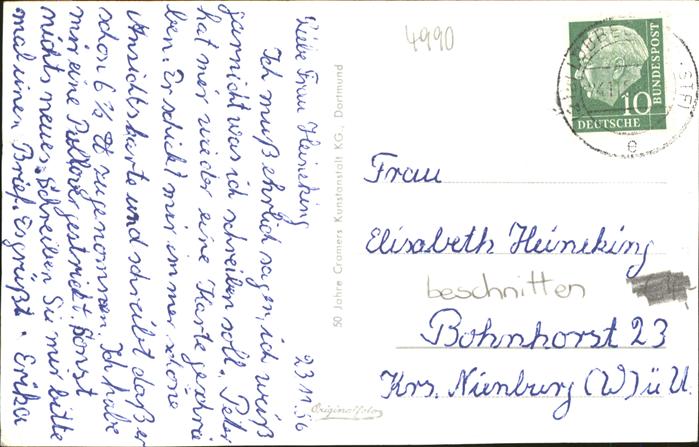 Liebe Frau Heineking
23.11.56
Ich muß ehrlich sagen, ich weiß
garnicht was ich schreiben soll. Peter
hat mir wieder eine Karte geschrie
ben. Er schickt mir immer schöne
Ansichtskarte und schreibt daß er
schon 6 ½ ℔ zugenommen. Ich habe
mir eine Pullover gestrickt. Sonst
nichts neues. Schreiben Sie mir bitte
mal einen Brief. Es grüßt. Erika
50 Jahre Cramers Kunstanstalt KG., Dortmund
Originalfoto
4990
10
DEUTSCHE
BUNDESPOST
e
Frau
Elisabeth Heineking
beschnitten
Bohnhorst 23
Krs. Nienburg (W) ü U.